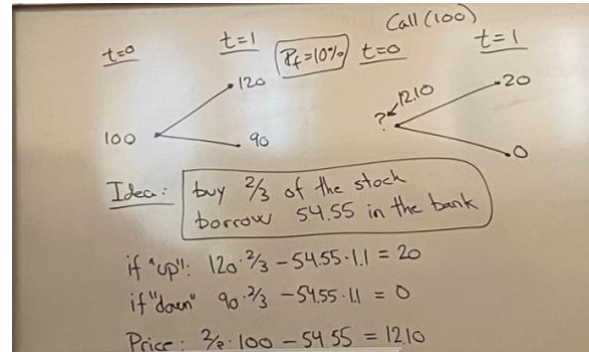 Call (100)
t=0 t=1 Rf=10% t=0 t=1
120 20
? 12.10
100 90 0
Idea: buy 2/3 of the stock
borrow 54.55 in the bank
if "up": 120·2/3 - 54.55·1.1 = 20
if "down" 90·2/3 - 54.55·1.1 = 0
Price: 2/3·100 - 54.55 = 12.10